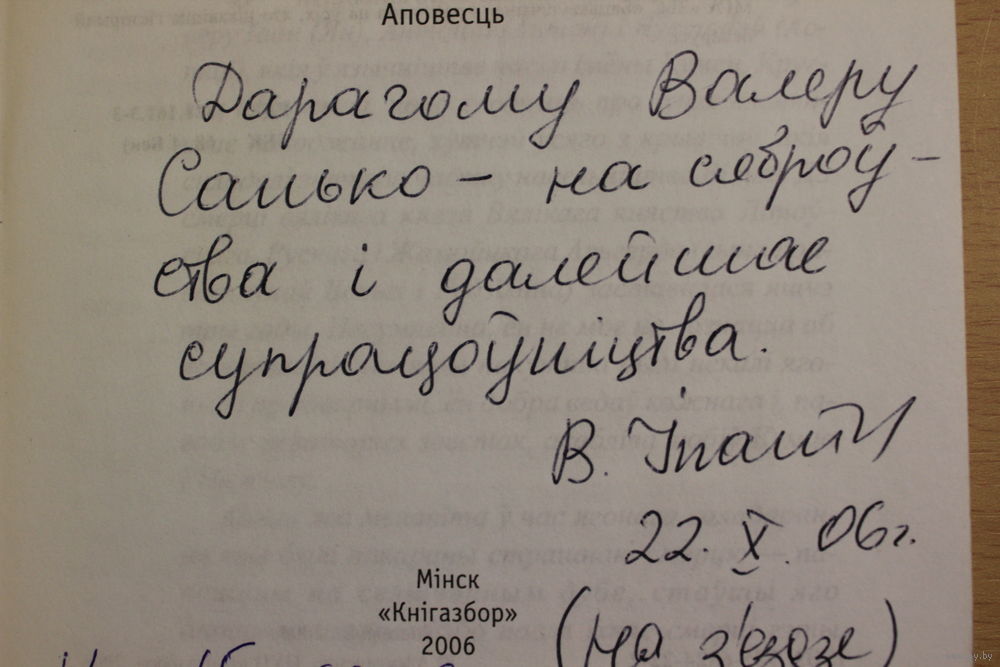 Аповесць
Дарагому Валеру
Санько – на сяброў–
ства і далейшае
супрацоўніцтва.
В. Іпатⱴ
22. X. 06 г.
Мінск
«Кнігазбор»
2006
(на з'ездзе)